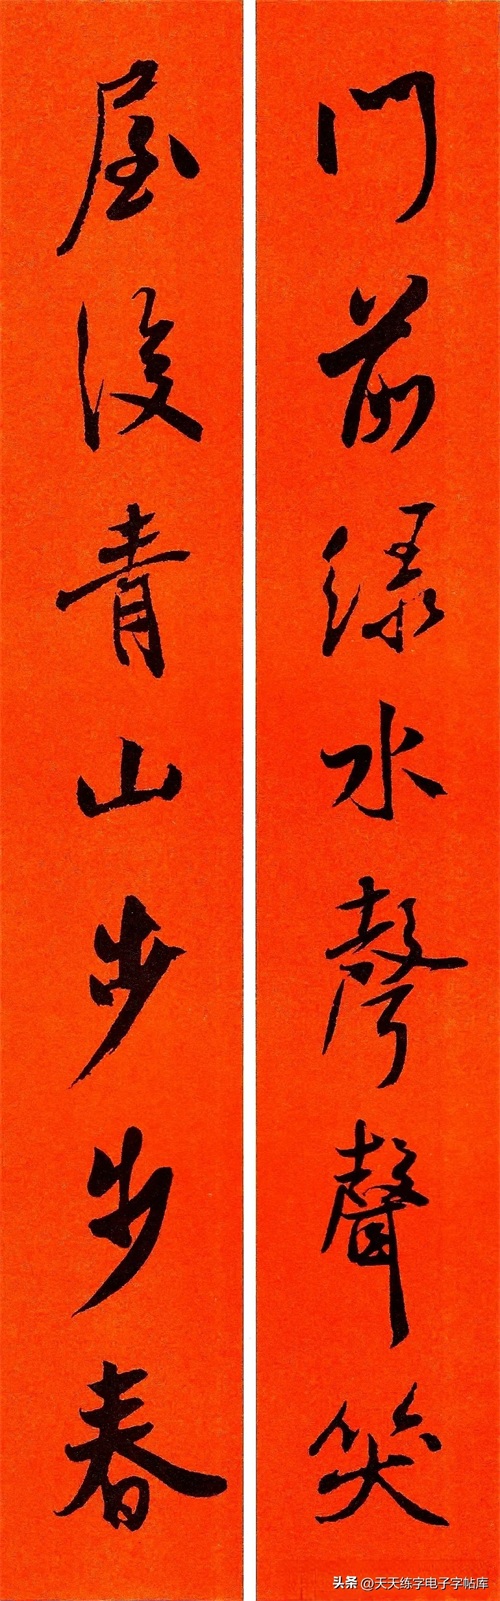 門前綠水聲聲笑
屋後青山步步春
头条 @天天练字电子字帖库